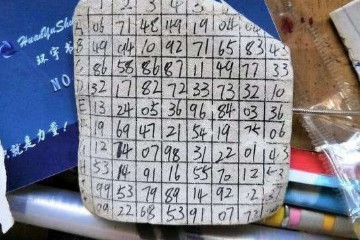 HuanYuShu
珠宇书
NO
就是力量!
1 2 3 4
06 71 48 49 19 04
B 49 04 10 92 71 65 83 4
86 58 86 87 11 49 77 33
D 32 17 82 72 33 73 32 10
E 13 24 05 36 96 84 03 36
19 69 47 21 54 19 75 06
12 74 07 98 31 22 01 14
53 14 91 16 55 70 12
99 53 79 89 14 92
09 22 68 53 91 07 72